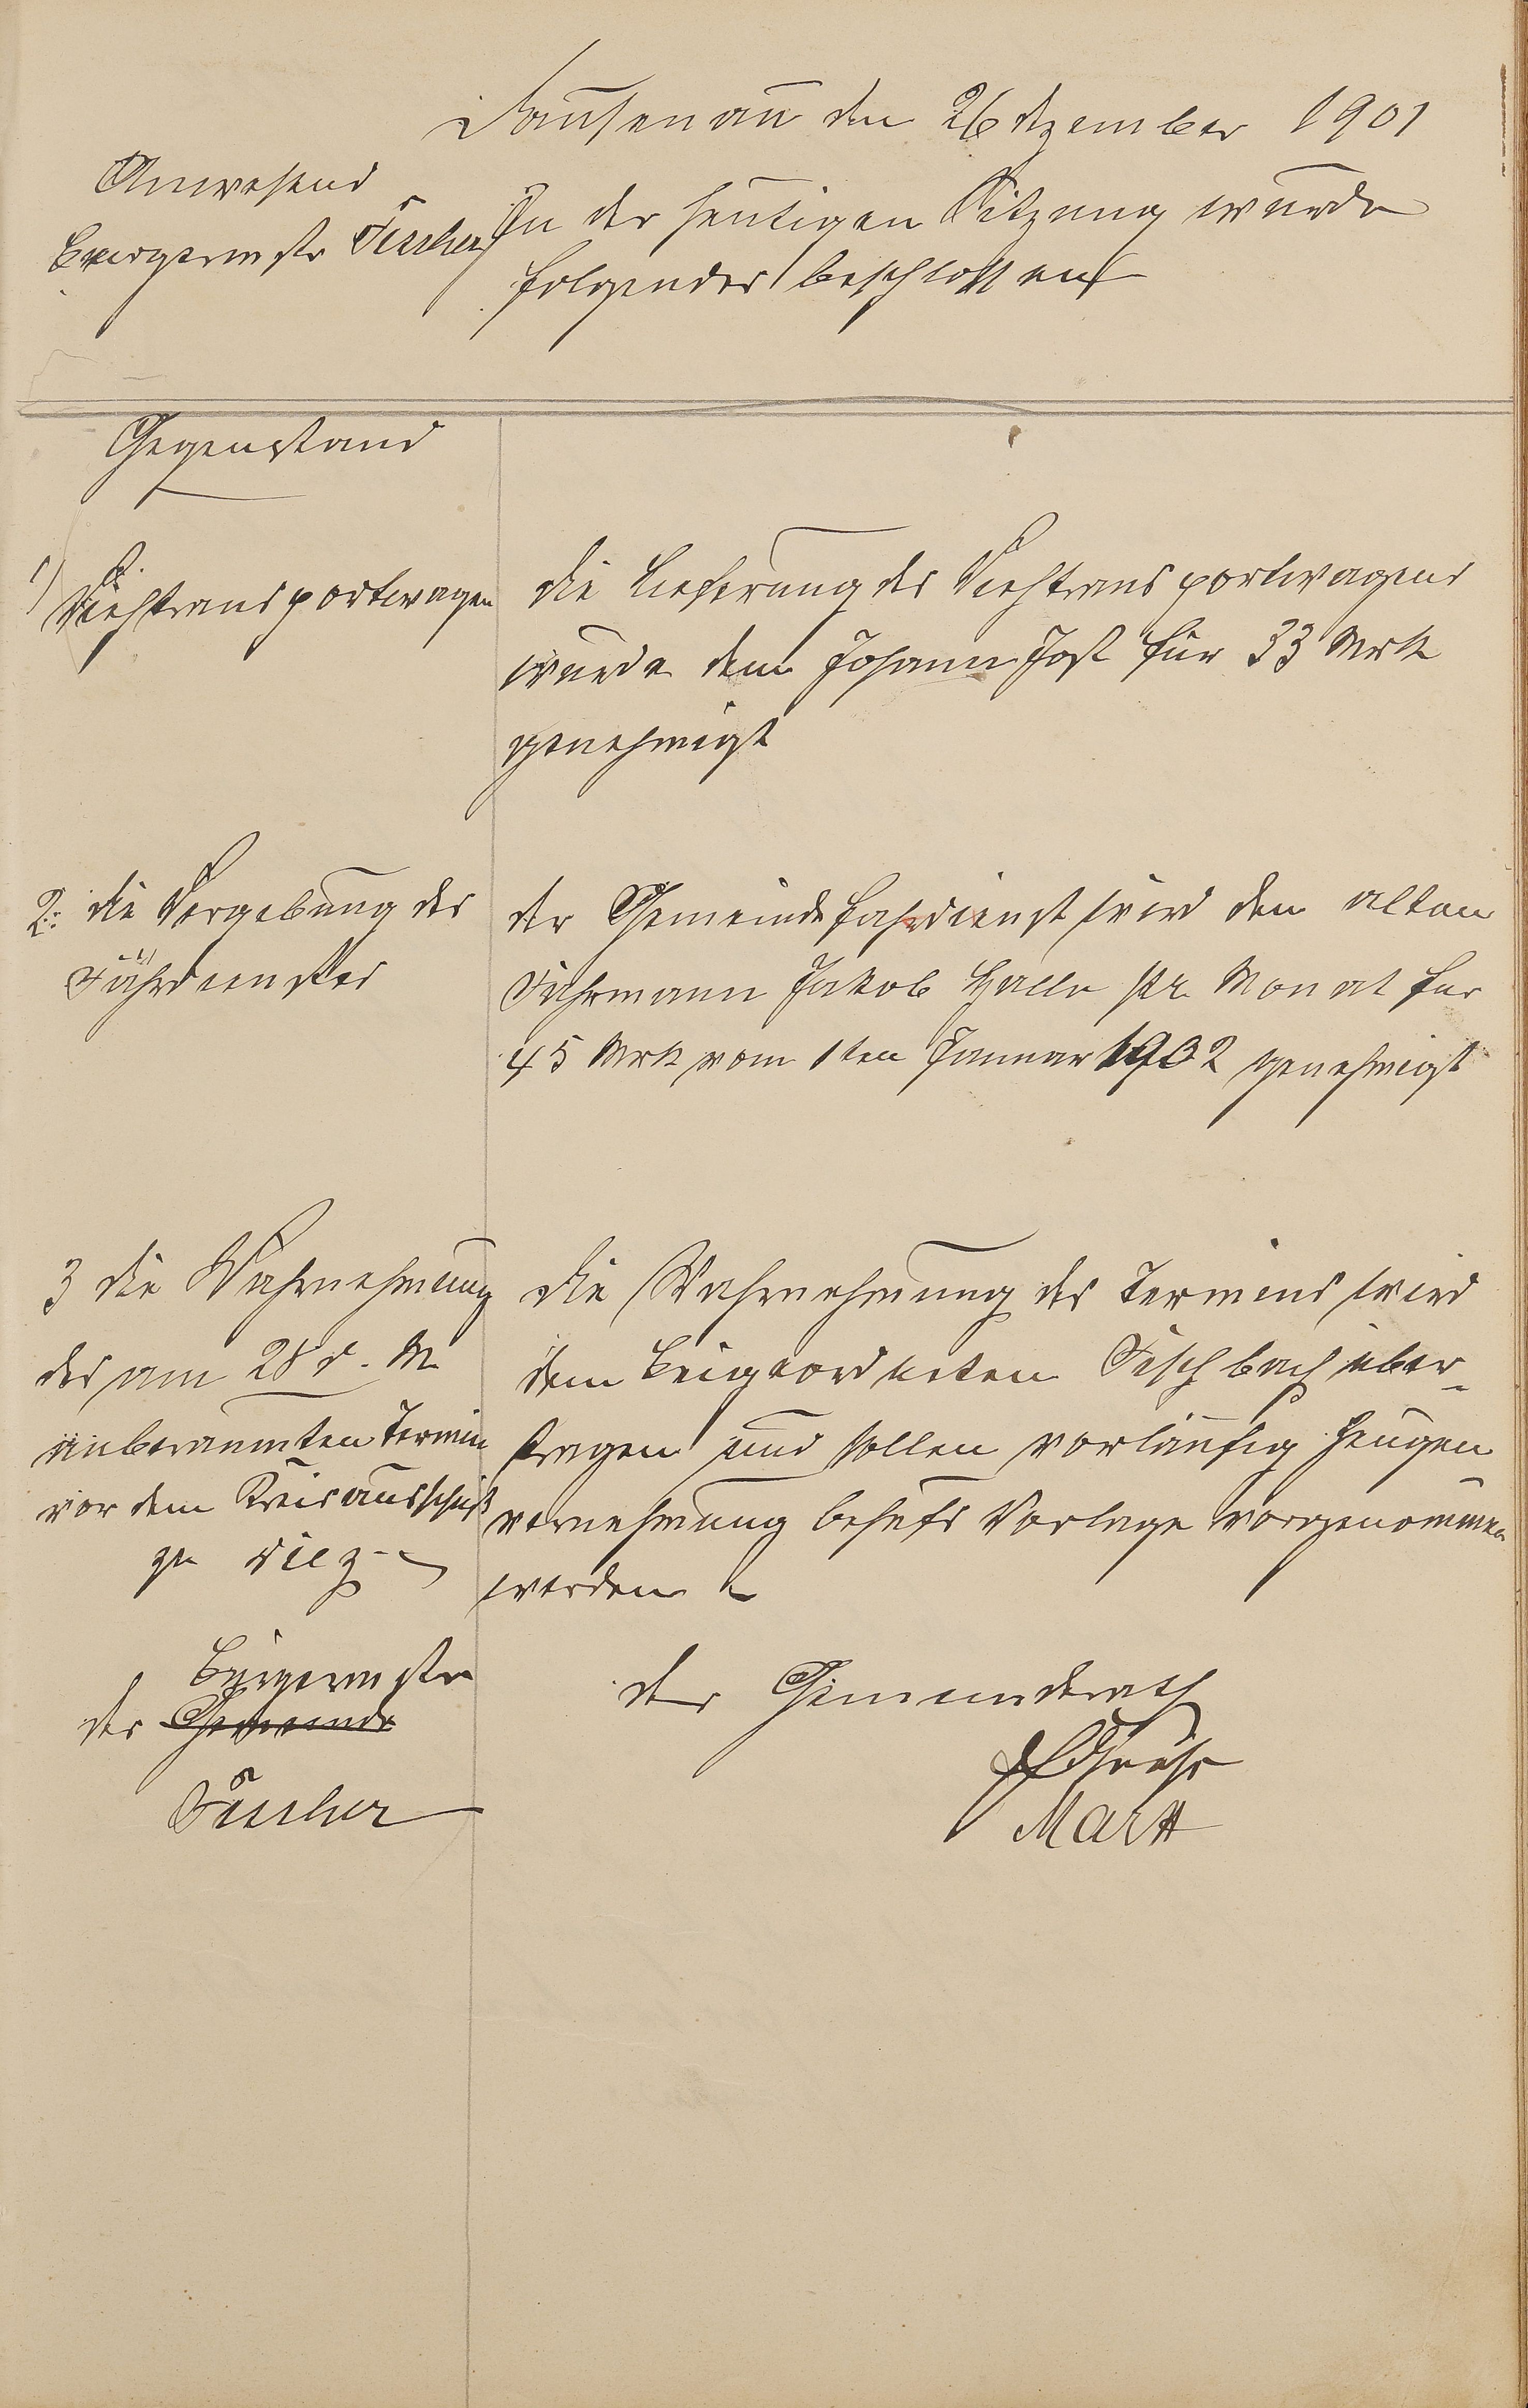 Dausenau den 26 Dezember 1901
Anwesend
Bürgermstr Fischer
In der heutigen Sitzung wurde
folgendes beschlossen
Gegenstand
1) Viehtransportwagen
die Lieferung des Viehtransportwagens
wurde dem Johann Jost für 33 Mrk
genehmigt
2. die Vergebung des
Fährdienstes
der Gemeindefahrdienst wird den alten
Fährmann Jakob Halle pr. Monat für
45 Mrk vom 1ten Januar 1902 genehmigt
3 die Wahrnehmung
des am 28 d. M.
anberaumten Termin
vor dem Kreisausschuß
zu Diez
die Wahrnehmung des Termins wird
dem Beigeordneten Fischbach über-
tragen und sollen vorläufig Zeugen
vernehmung behufs Vorlage vorgenommen
werden
Bürgermstr
der Gemeinde
Fischer
der Gemeinderath
Martt